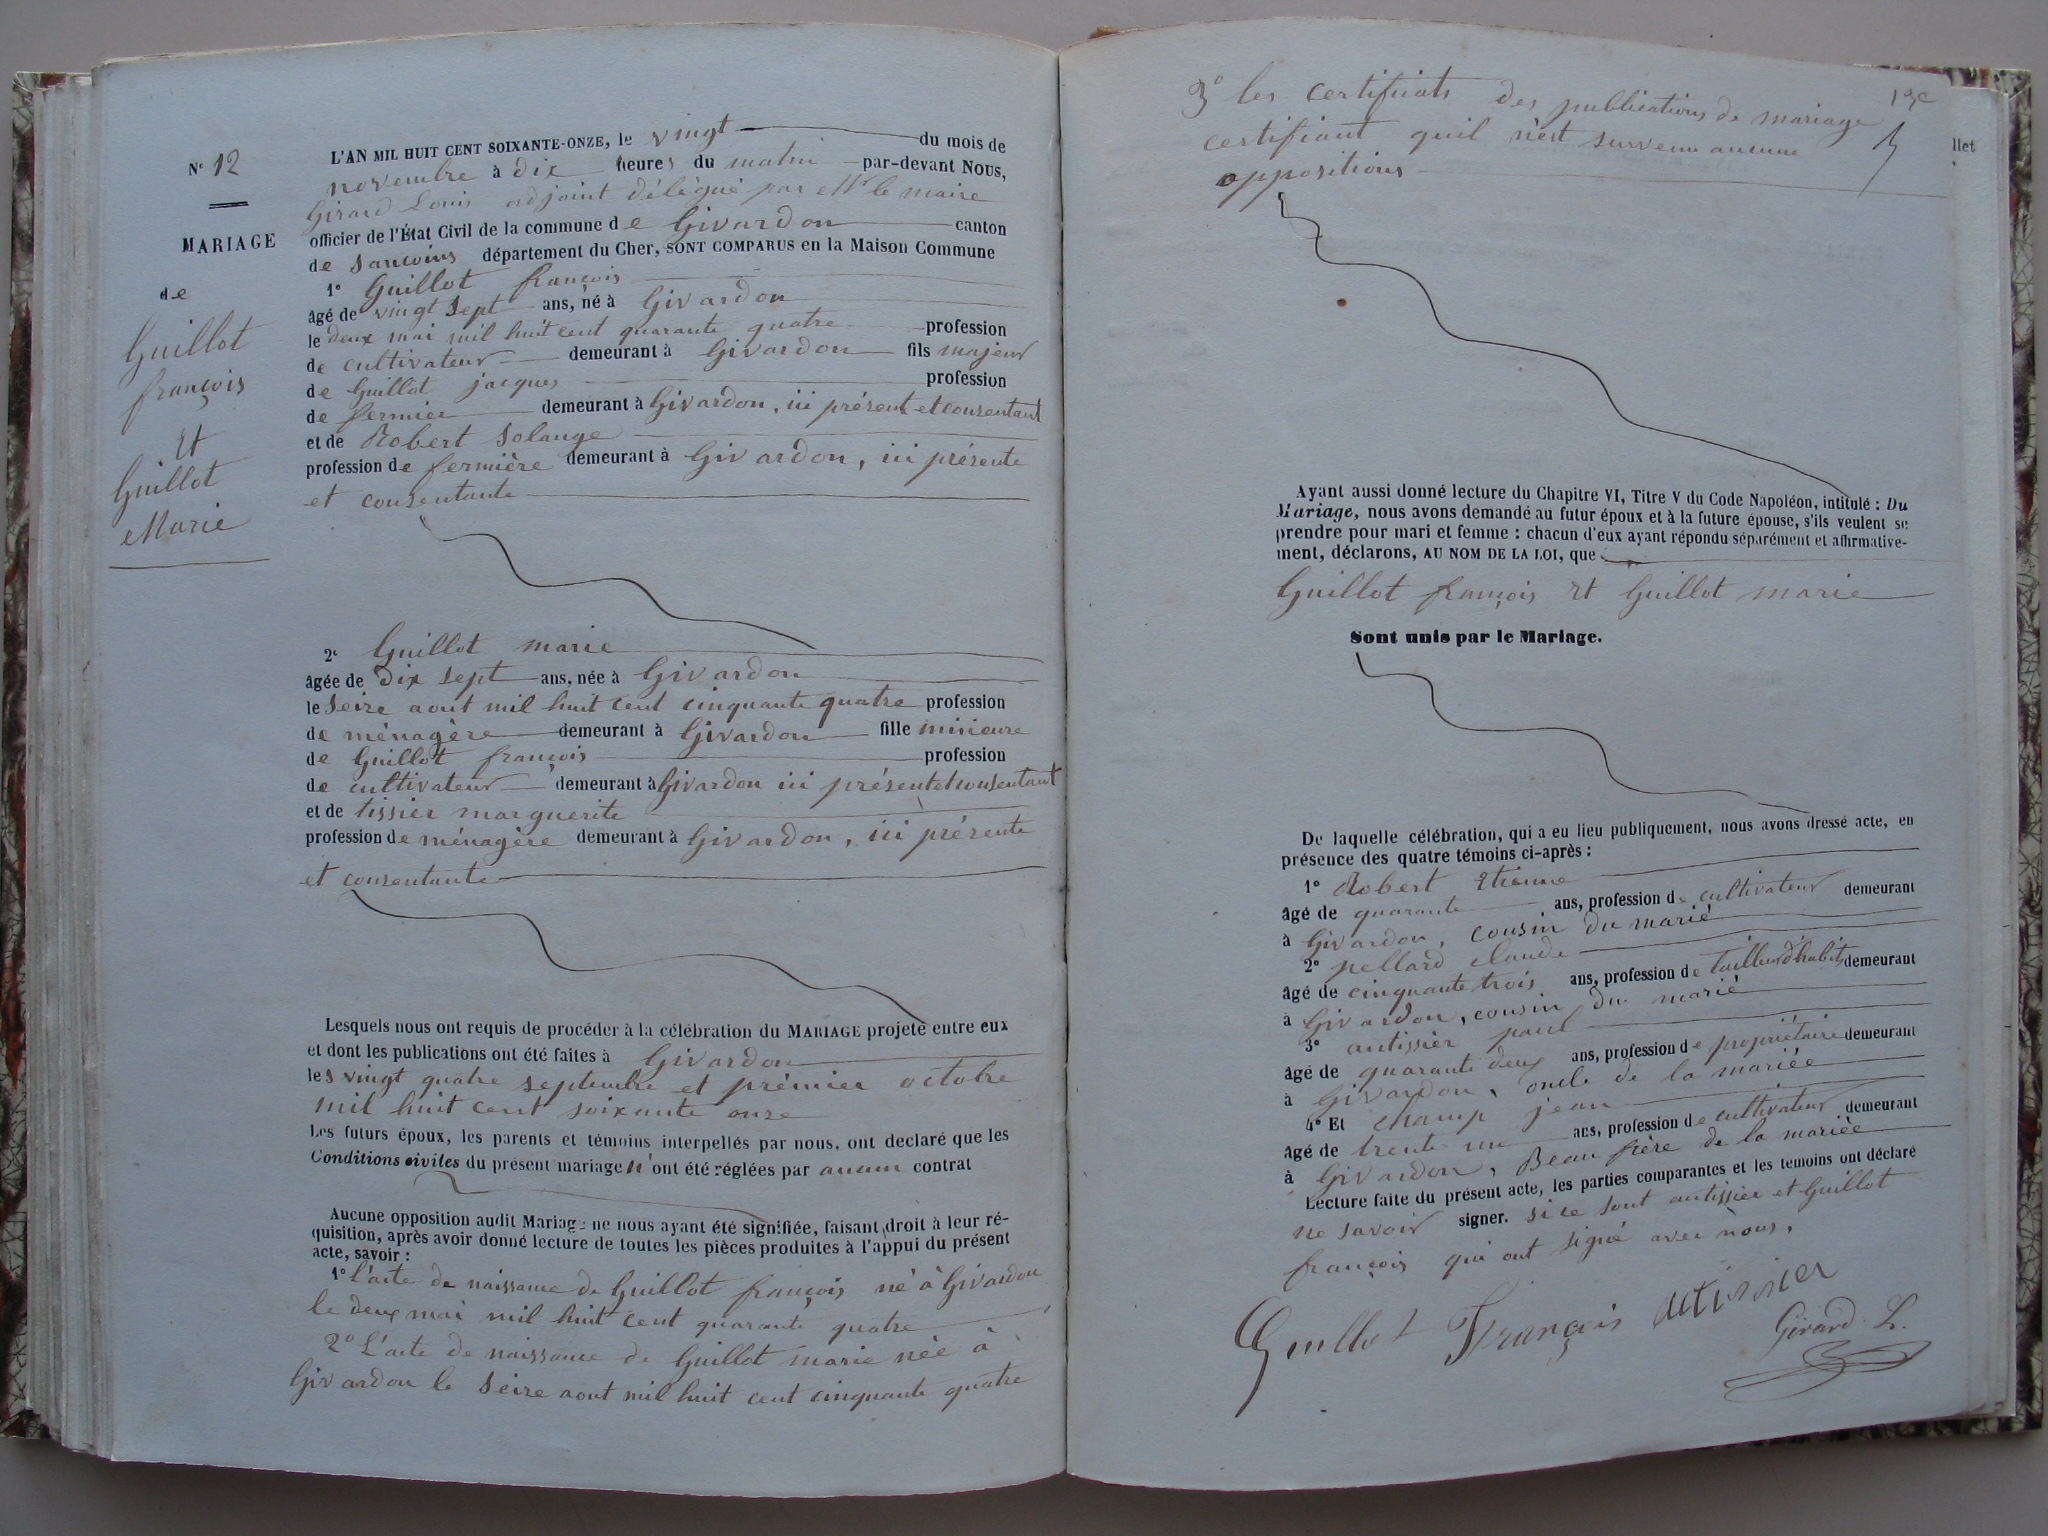 N° 12
MARIAGE
de
Guillot
françois
Et
Guillot
Marie
L'AN MIL HUIT CENT SOIXANTE-ONZE, le vingt du mois de
novembre à dix heures du matin par-devant NOUS,
Girard Louis adjoint délégué par Mr le maire
officier de l'État Civil de la commune de Givardon canton
de Sancoins département du Cher, SONT COMPARUS en la Maison Commune
1° Guillot françois
âgé de vingt sept ans, né à Givardon
le deux mai mil huit cent quarante quatre profession
de cultivateur demeurant à Givardon fils majeur
de Guillot jacques profession
de fermier demeurant à Givardon, ici présent et consentant
et de Robert Solange
profession de fermière demeurant à Givardon, ici présente
et consentante
2° Guillot marie
âgée de dix sept ans, née à Givardon
le Seize aout mil huit cent cinquante quatre profession
de ménagère demeurant à Givardon fille mineure
de Guillot françois profession
de cultivateur demeurant à Givardon ici présent et consentant
et de tissier marguerite
profession de ménagère demeurant à Givardon, ici présente
et consentante
Lesquels nous ont requis de procéder à la célébration du MARIAGE projeté entre eux
et dont les publications ont été faites à Givardon
les vingt quatre septembre et prémier octobre
mil huit cent soixante onze
Les futurs époux, les parents et témoins interpellés par nous, ont déclaré que les
Conditions civiles du présent mariage n'ont été réglées par aucun contrat
Aucune opposition audit Mariage ne nous ayant été signifiée, faisant droit à leur ré-
quisition, après avoir donné lecture de toutes les pièces produites à l'appui du présent
acte, savoir :
1° L'acte de naissance de Guillot françois né à Givardon
le deux mai mil huit cent quarante quatre
2° L'acte de naissance de Guillot marie née à
Givardon le Seize aout mil huit cent cinquante quatre
3° les certificats des publications de mariage
certifiant quil n'est survenu aucune
oppositions
llet
Ayant aussi donné lecture du Chapitre VI, Titre V du Code Napoléon, intitulé : Du
Mariage, nous avons demandé au futur époux et à la future épouse, s'ils veulent se
prendre pour mari et femme : chacun d'eux ayant répondu séparément et affirmative-
ment, déclarons, AU NOM DE LA LOI, que
Guillot françois Et Guillot marie
Sont unis par le Mariage.
De laquelle célébration, qui a eu lieu publiquement, nous avons dressé acte, en
présence des quatre témoins ci-après :
1° Robert Etienne
âgé de quarante ans, profession de cultivateur demeurant
à Givardon, cousin du marié
2° pellard claude
âgé de cinquante trois ans, profession de tailleur d'habits demeurant
à Givardon, cousin du marié
3° autissier paul
âgé de quarante deux ans, profession de propriétaire demeurant
à Givardon, oncle de la mariée
4° Et champ jean
âgé de trente un ans, profession de cultivateur demeurant
à Givardon, Beau frère de la mariée
Lecture faite du présent acte, les parties comparantes et les témoins ont déclaré
ne savoir signer. si ce sont autissier et Guillot
françois qui ont signé avec nous.
Guillot François autissier
Girard L.